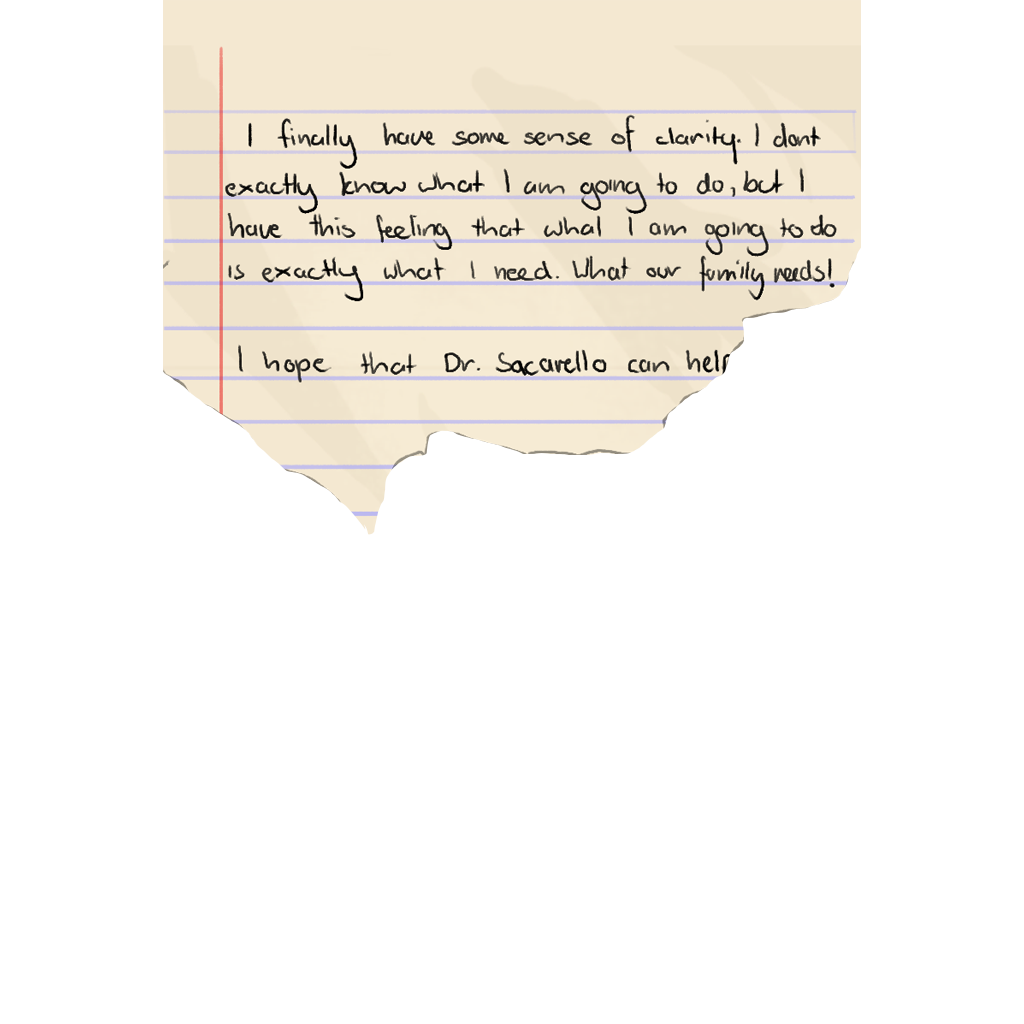 I finally have some sense of clarity. I dont
exactly know what I am going to do, but I
have this feeling that what I am going to do
is exactly what I need. What our family needs!
I hope that Dr. Sacarello can help